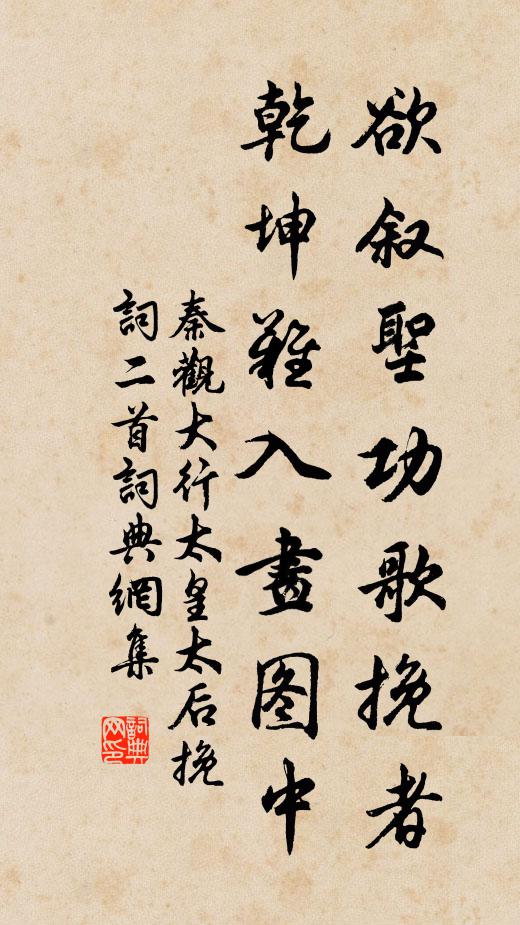 欲叙聖功歌挽者
乾坤難入畫图中
秦觀大行太皇太后挽
詞二首詞典網集
詞典网印